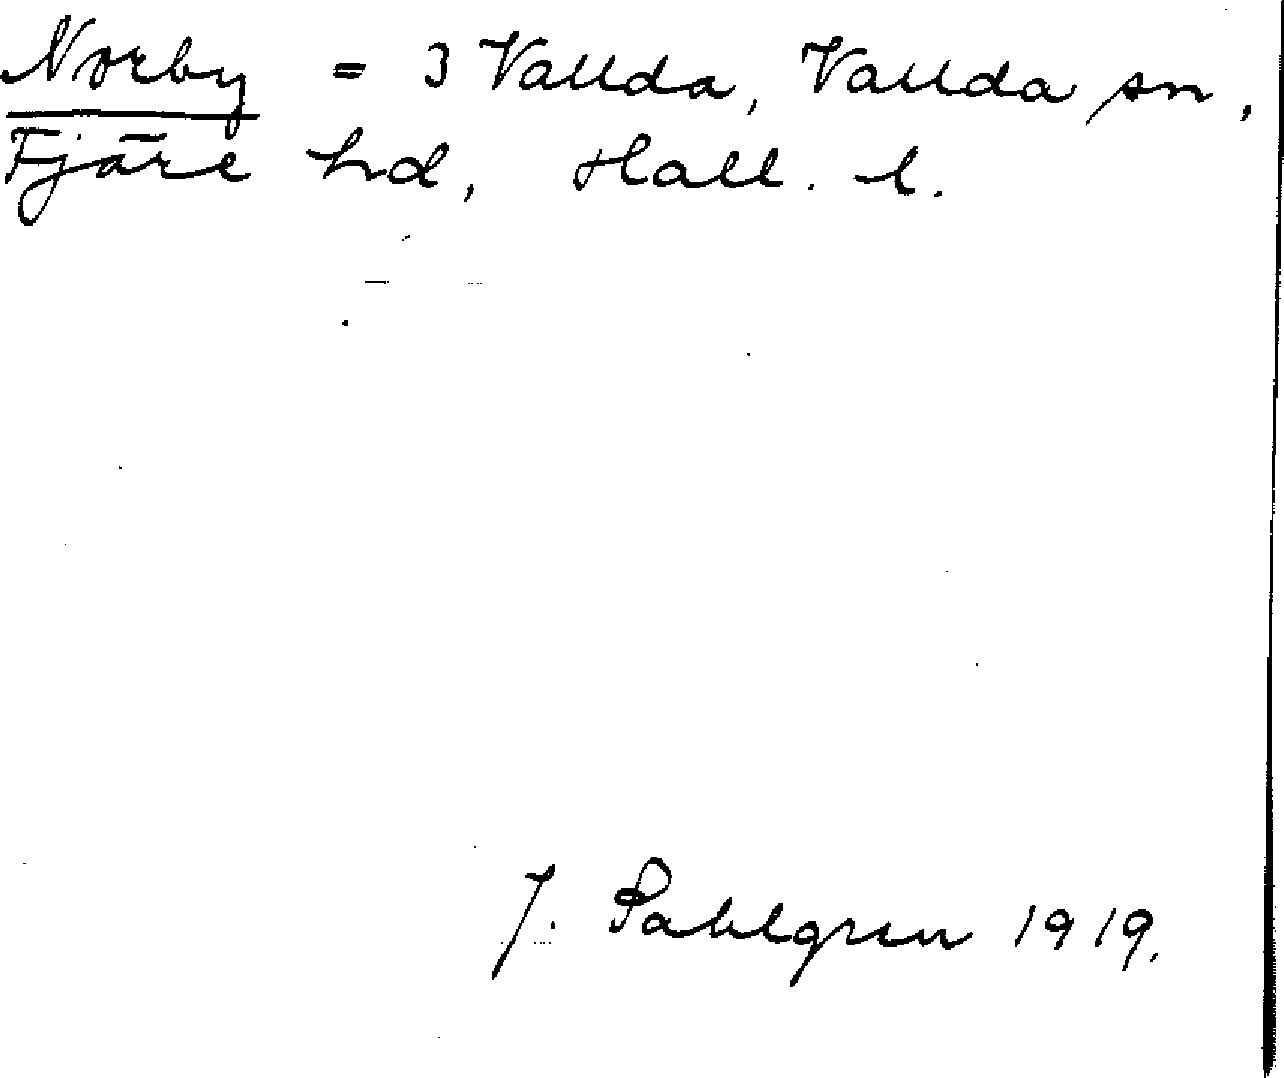 Norby = 3 Vallda, Vallda sn,
Fjäre hd, Hall. l.
J. Sahlgren 1919.